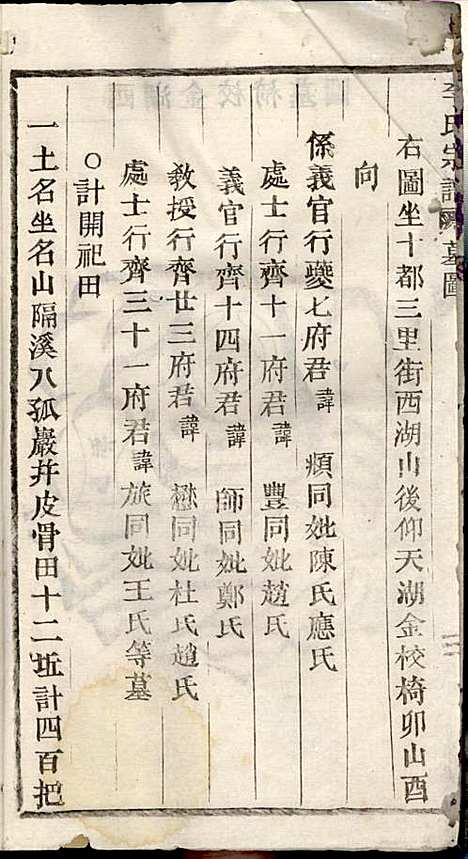 李氏宗譜 墓圖
右圖坐十都三里街西湖山後仰天湖金校椅卯山酉
向
係義官行夔七府君諱 頫同妣陳氏應氏
處士行齊十一府君諱 豐同妣趙氏
義官行齊十四府君諱 師同妣鄭氏
教授行齊廿三府君諱 懋同妣杜氏趙氏
處士行齊三十一府君諱 旅同妣王氏等墓
○計開祀田
一土名坐名山隔溪八孤巖并皮骨田十二坵計四百把